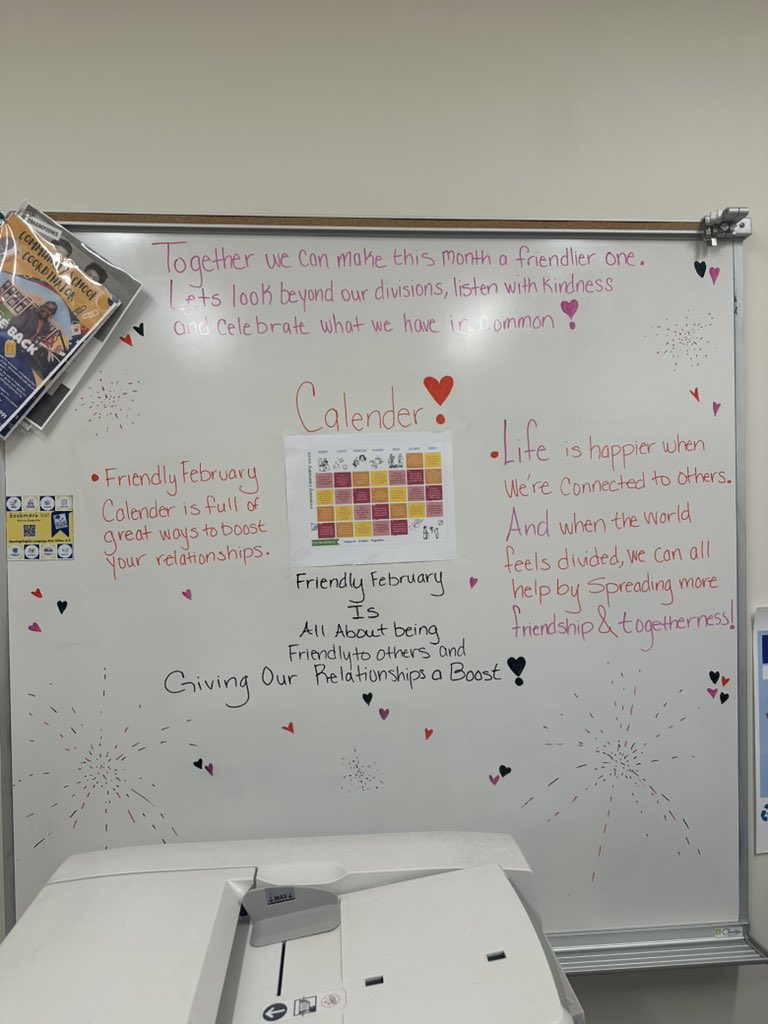 Together we can make this month a friendlier one.
Lets look beyond our divisions, listen with kindness
and celebrate what we have in common
COMMUNITY SCHOOL
COORDINATOR
Calender
Friendly February
Calender is full of
great ways to boost
your relationships.
Life is happier when
we're connected to others.
And when the world
feels divided, we can all
help by spreading more
friendship & togetherness!
Bookmark Us!
Friendly February
Is
All About being
Friendly to others and
Giving Our Relationships a Boost
MAX